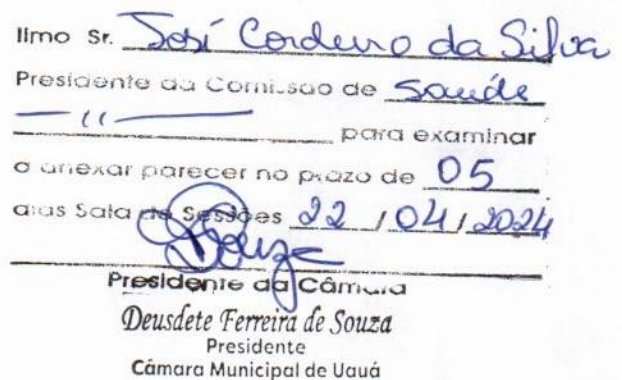 Ilmo Sr. José Cordeiro da Silva
Presidente da Comissão de Saúde
—11— para examinar
e anexar parecer no prazo de 05
dias Sala de Sessões 22 / 04 / 2024
Souza
Presidente da Câmara
Deusdete Ferreira de Souza
Presidente
Câmara Municipal de Uauá